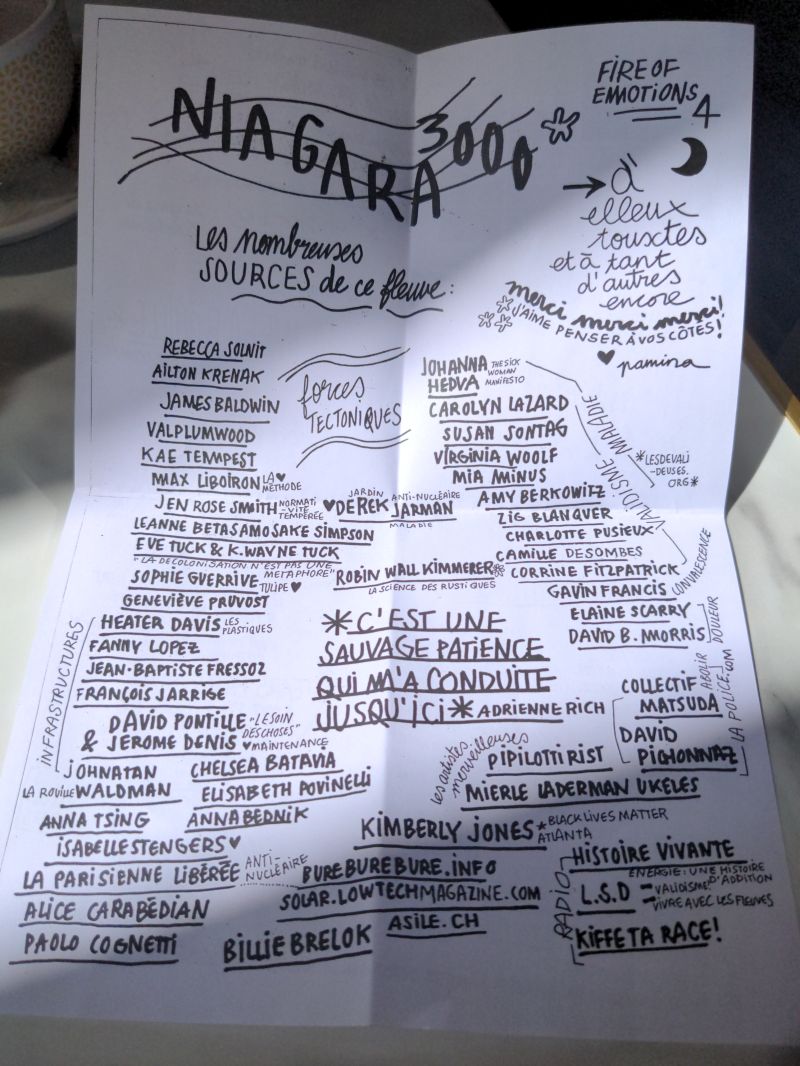 NIAGARA 3000*
FIRE OF
EMOTIONS 4
→ à
elleux
toustes
et à tant
d'autres
encore
merci merci merci!
J'AIME PENSER À VOS CÔTÉS!
♥ pamina
Les nombreuses
SOURCES de ce fleuve:
forces
TECTONIQUES
REBECCA SOLNIT
AILTON KRENAK
JAMES BALDWIN
VAL PLUMWOOD
KAE TEMPEST
MAX LIBOIRON LA ♥
MÉTHODE
JEN ROSE SMITH NORMATI-
VITÉ
TEMPÉRÉE
LEANNE BETASAMOSAKE SIMPSON
EVE TUCK & K. WAYNE TUCK
"LA DÉCOLONISATION N'EST PAS UNE
MÉTAPHORE"
SOPHIE GUERRIVE TULIPE ♥
GENEVIÈVE PRUVOST
INFRASTRUCTURES
HEATER DAVIS LES
PLASTIQUES
FANNY LOPEZ
JEAN-BAPTISTE FRESSOZ
FRANÇOIS JARRIGE
DAVID PONTILLE "LE SOIN
DES CHOSES"
& JEROME DENIS ♥ MAINTENANCE
JOHNATAN
LA ROUILLE WALDMAN
CHELSEA BATAVIA
ELISABETH POVINELLI
ANNA TSING
ANNA BEDNIK
ISABELLE STENGERS ♥
LA PARISIENNE LIBÉRÉE ANTI-
NUCLÉAIRE
ALICE CARABÉDIAN
PAOLO COGNETTI
BILLIE BRELOK
JARDIN ANTI-NUCLÉAIRE
♥ DEREK JARMAN
MALADIE
ROBIN WALL KIMMERER
LA SCIENCE DES RUSTIQUES
* C'EST UNE
SAUVAGE PATIENCE
QUI M'A CONDUITE
JUSQU'ICI * ADRIENNE RICH
JOHANNA THE SICK
WOMAN
HEDVA MANIFESTO
CAROLYN LAZARD
SUSAN SONTAG
VIRGINIA WOOLF
MIA MINUS
AMY BERKOWITZ
ZIG BLANQUER
CHARLOTTE PUISEUX
CAMILLE DESOMBES
CORRINE FITZPATRICK
VALIDISME MALADIE
*LESDEVALI
-DEUSES.
ORG*
CONVALESCENCE
GAVIN FRANCIS
ELAINE SCARRY
DAVID B. MORRIS
DOULEUR
COLLECTIF
MATSUDA
ABOLIR
LA POLICE.COM
DAVID
PICHONNAZ
les artistes
merveilleuses
PIPILOTTI RIST
MIERLE LADERMAN UKELES
KIMBERLY JONES * BLACK LIVES MATTER
ATLANTA
BUREBUREBURE.INFO
SOLAR.LOWTECHMAGAZINE.COM
ASILE.CH
RADIO
HISTOIRE VIVANTE
ENERGIE: UNE HISTOIRE
D'ADDITION
L.S.D = VALIDISME
= VIVRE AVEC LES FLEUVES
KIFFE TA RACE!